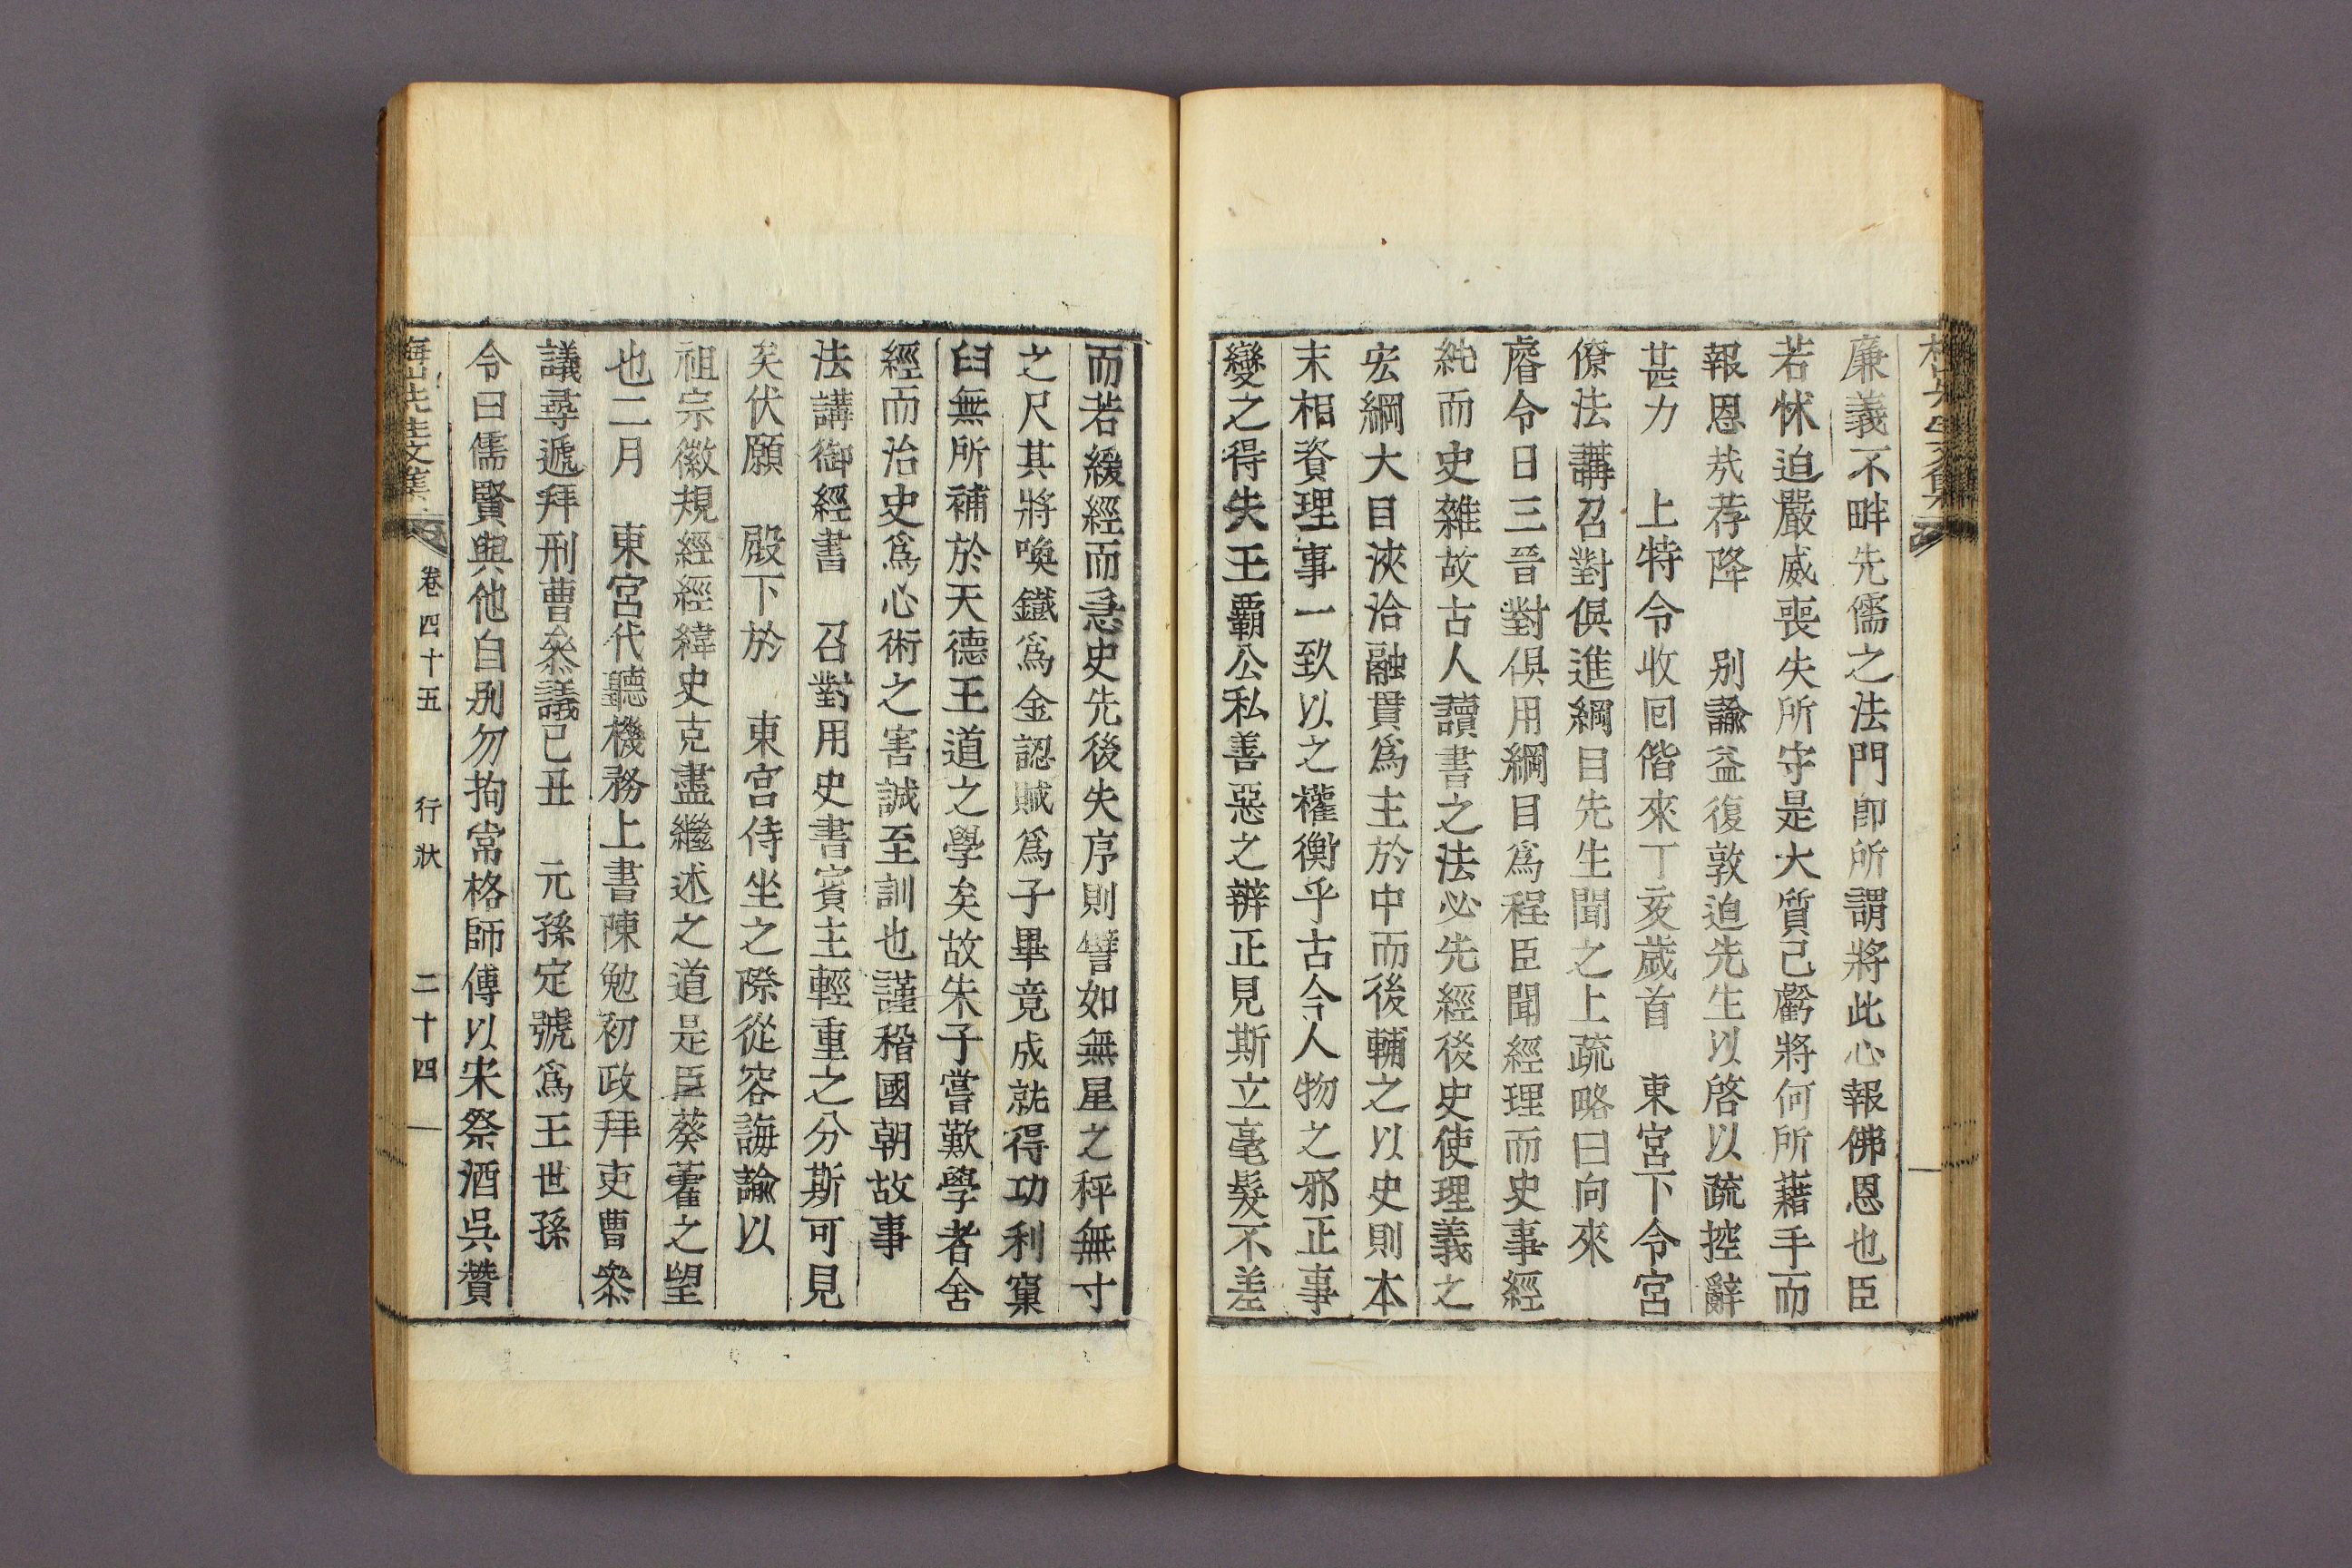 廉義不畔先儒之法門卽所謂將此心報佛恩也臣
若怵迫嚴威喪失所守是大質己虧將何所藉手而
報恩㢤荐降 別諭益復敦迫先生以啓以疏控辭
甚力 上特令收回偕來丁亥歲首 東宮下令宮
僚法講召對俱進綱目先生聞之上疏略曰向來
睿令日三晉對俱用綱目爲程臣聞經理而史事經
純而史雜故古人讀書之法必先經後史使理義之
宏綱大目浹洽融貫爲主於中而後輔之以史則本
末相資理事一致以之權衡乎古今人物之邪正事
變之得失王霸公私善惡之辨正見斯立毫髮不差
而若緩經而急史先後失序則譬如無星之秤無寸
之尺其將喚鐵爲金認賊爲子畢竟成就得功利窠
臼無所補於天德王道之學矣故朱子嘗歎學者舍
經而治史爲心術之害誠至訓也謹稽國朝故事
法講御經書 召對用史書賓主輕重之分斯可見
矣伏願 殿下於 東宮侍坐之際從容誨諭以
祖宗徽規經經緯史克盡繼述之道是臣葵藿之望
也二月 東宮代聽機務上書陳勉初政拜吏曹叅
議尋遞拜刑曹叅議己丑 元孫定號爲王世孫
令曰儒賢與他自別勿拘常格師傅以宋祭酒吳贊
先生文集 卷四十五 行狀 二十四